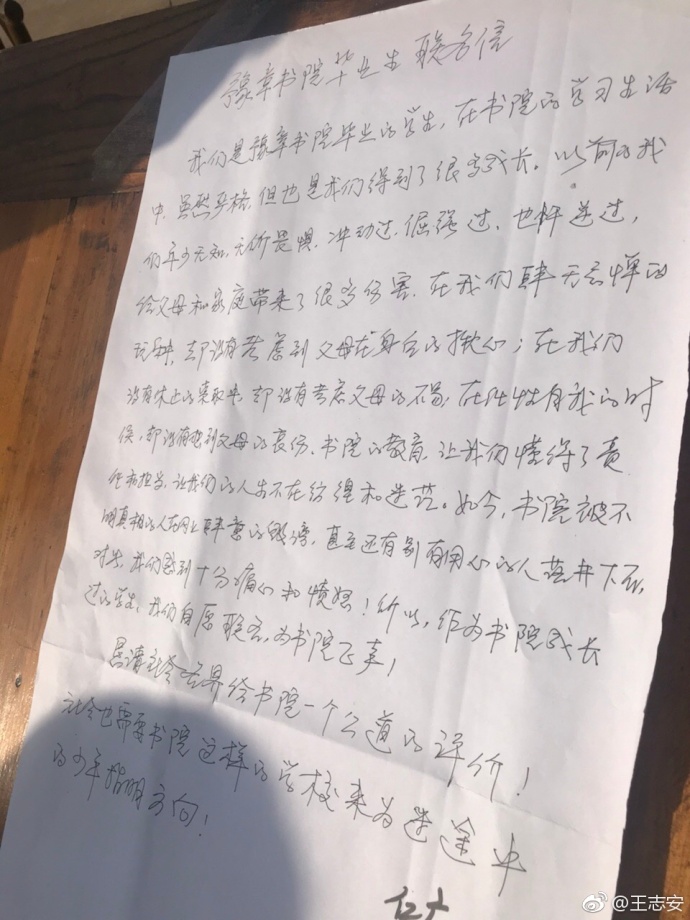 豫章书院毕业生联名信
我们是豫章书院毕业的学生,在书院的学习生活
中,虽然严格,但也是我们得到了很多成长。以前的我
们年少无知,无所畏惧,冲动过,倔强过,也忤逆过,
给父母和家庭带来了很多伤害,在我们肆无忌惮的
玩耍,却没有考虑到父母在身后的揪心;在我们
没有休止的索取时,却没有考虑父母的不易,在任性自我的时
候,却没有想到父母的哀伤。书院的教育,让我们懂得了责
任和担当,让我们的人生不在彷徨和迷茫。如今,书院被不
明真相的人在网上肆意的毁谤,甚至还有别有用心的人落井下石,
对此,我们感到十分痛心和愤怒!所以,作为书院成长
过的学生,我们自愿联名,为书院正声!
恳请社会各界给书院一个公道的评价!
社会也需要书院这样的学校来为迷途中
的少年指明方向!
@王志安